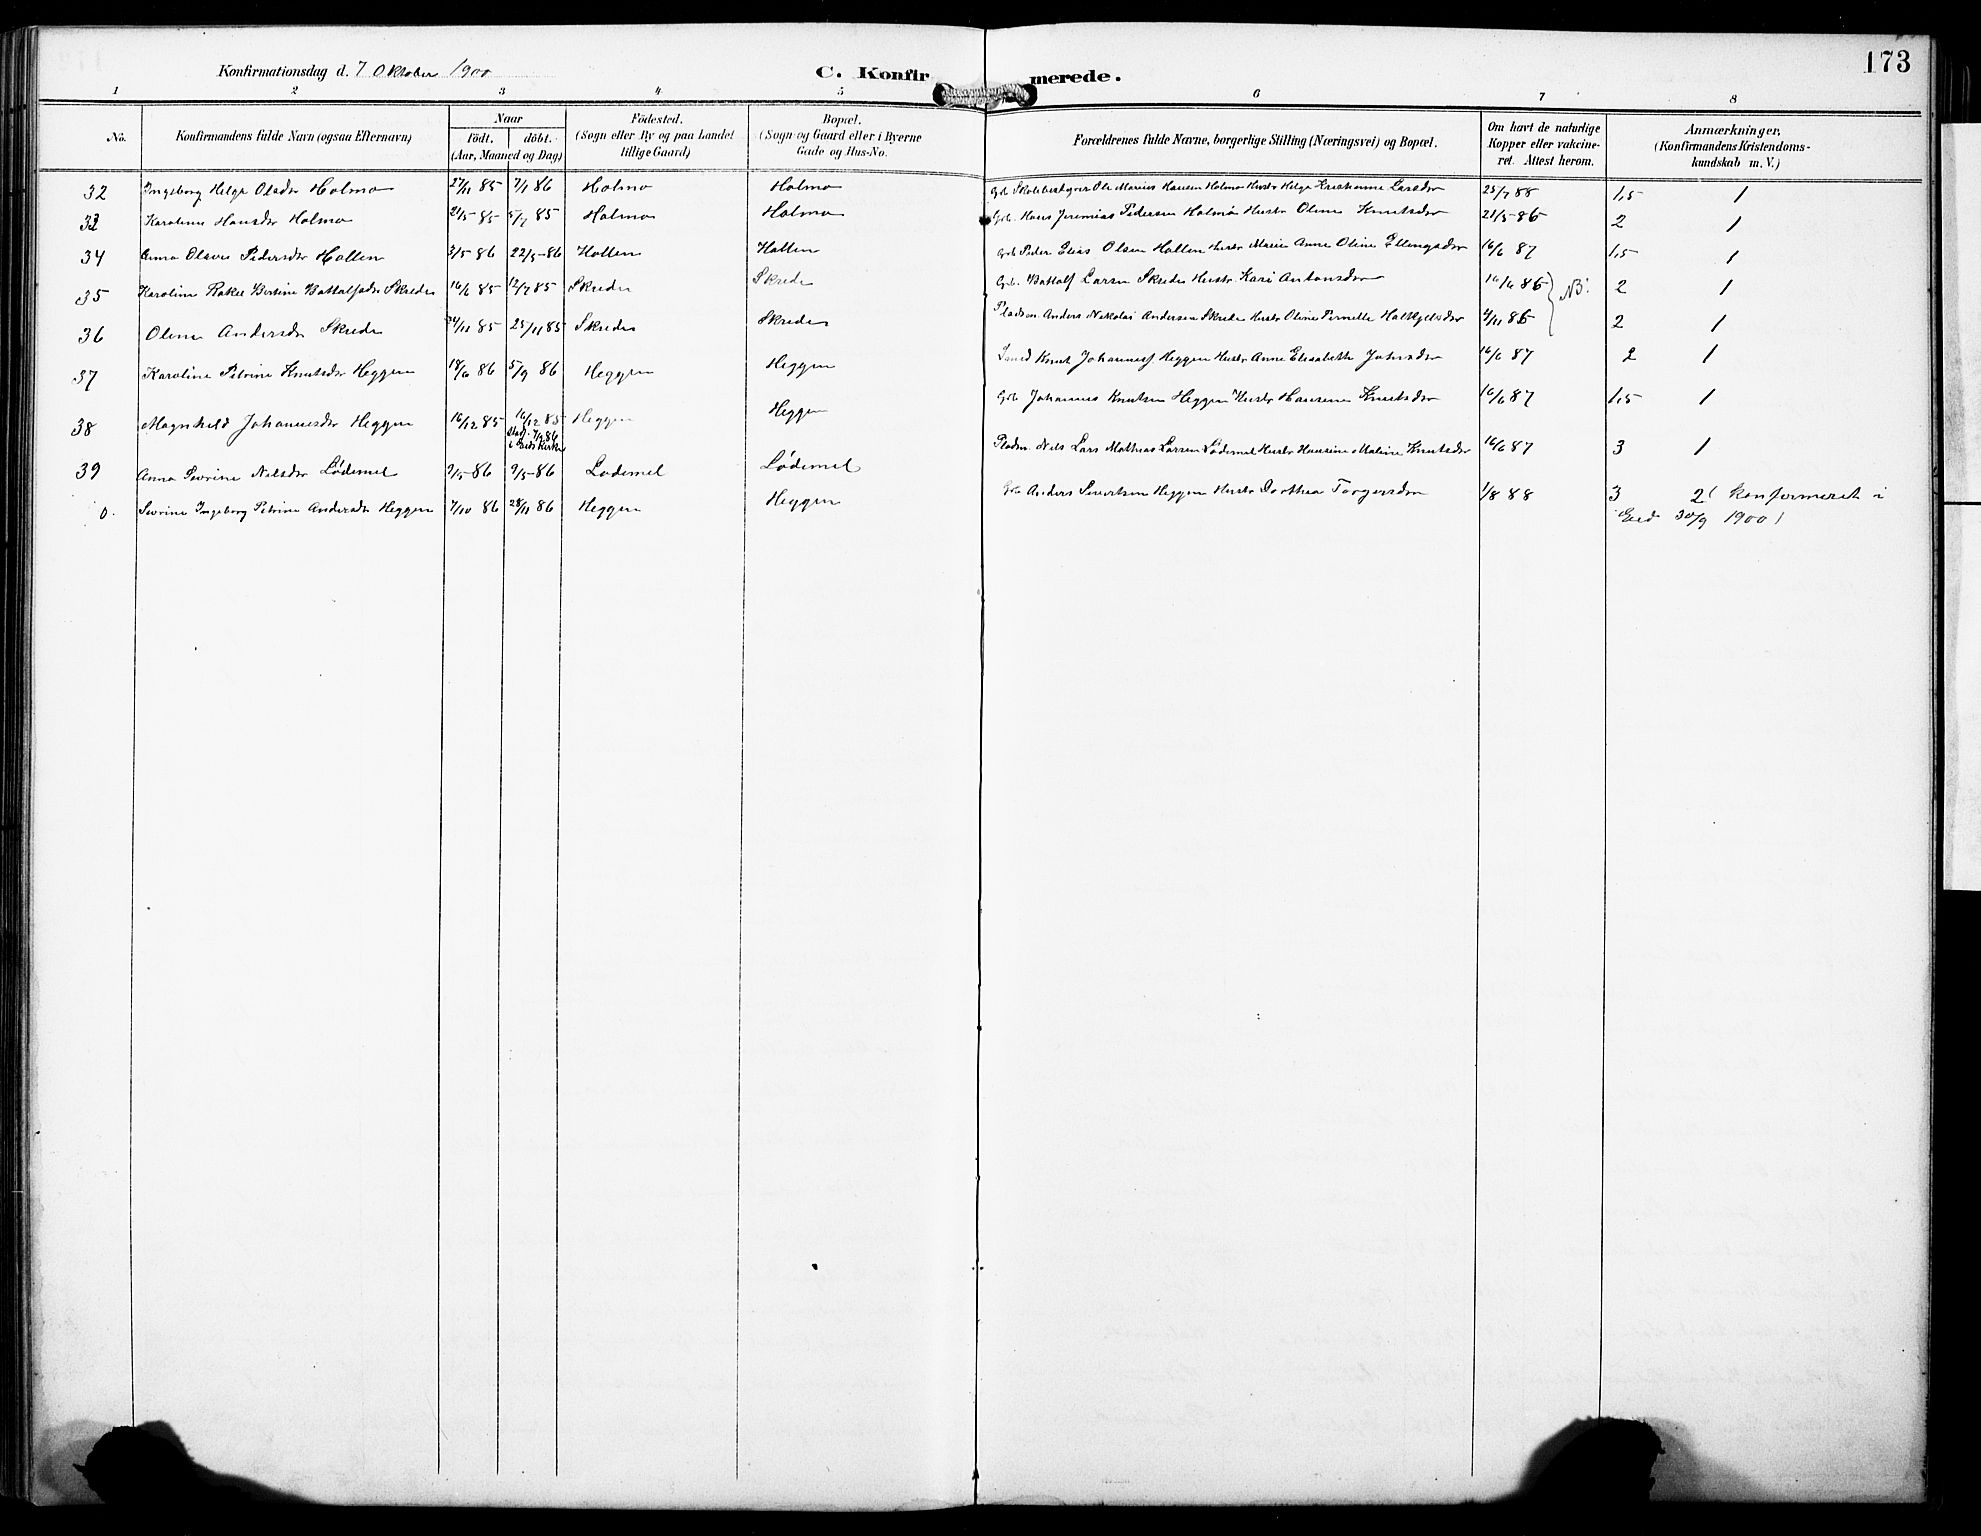 173
Konfirmationsdag d. 7 Oktober 1900
C. Konfirmerede.
1 2 3 4 5 6 7 8
No. Konfirmandens fulde Navn (ogsaa Efternavn) Naar født. døbt. (Aar, Maaned og Dag) Fødested. (Sogn eller By og paa Landet tillige Gaard) Bopæl. (Sogn og Gaard eller i Byerne Gade og Hus-No. Forældrenes fulde Navne, borgerlige Stilling (Næringsvei) og Bopæl. Om havt de naturlige Kopper eller vakcineret. Attest herom. Anmærkninger, (Konfirmandens Kristendomskundskab m. V.)
32 Ingeborg Helge Olsdr Holmo 27/11 85 7/1 86 Holmo Holmo Gb. Skolebestyrer Ole Marius Hansen Holmo Hustr Helge Kristianne Larsdr 25/7 88 1,5 1
33 Karoline Hansdr Holmo 21/5 85 5/7 85 Holmo Holmo Gb. Hans Jeremias Pedersen Holmo Hustr Oline Knutsdr 21/5-86 2 1
34 Anna Olave Pedersdr Hollen 3/5 86 22/5-86 Hollen Hollen Gb Peder Elias Olsen Hollen Hustr Marie Anne Oline Ellingsdr 16/6 87 1,5 1
35 Karoline Rakel Bertine Bottolfsdr Skrede 16/6 85 12/7 85 Skrede Skrede Gb. Bottolf Larsen Skrede Hustr. Kari Antonsdr 16/6 86 NB. 2 1
36 Oline Andersdr Skrede 24/11 85 25/11 85 Skrede Skrede Pladsm Anders Nikolai Andersen Skrede Hustr Oline Pernelle Halkjelsdr 4/11 86 2 1
37 Karoline Petrine Knutsdr Heggen 18/6 86 5/9 86 Heggen Heggen Smed Knut Johannesf Heggen Hustr Anne Elisabeth Johnsdr 16/6 87 2 1
38 Magnhild Johannesdr Heggen 16/12 85 16/12 85 Heggen Heggen Gb. Johannes Knutsen Heggen Hustr Hansine Knutsdr 16/6 87 1,5 1
Stadf. 7/2 86
i Eids Kirke
39 Anna Sevrine Nelsdr Lødemel 9/5-86 9/5-86 Lødemel Lødemel Pladsm. Nels Lars Mathias Larsen Lødemel Hustr Hansine Maline Knutsdr 16/6 87 3 1
0. Sevrine Ingeborg Petrine Andersdr Heggen 7/10 86 28/11 86 Heggen Heggen Gb Anders Severtsen Heggen Hustr Dorthea Torgersdr 1/8 88 3 2 (konfirmeret i
Eid 30/9 1900)